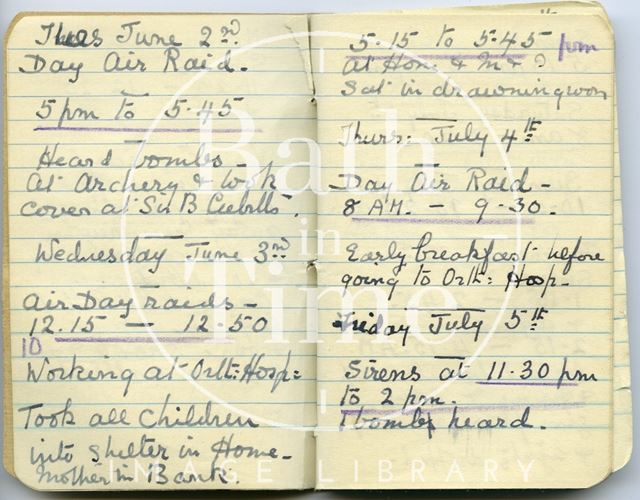 Tues June 2nd.
Day Air Raid.
5 pm to 5.45
Heard bombs -
At Archery & took
cover at Sir B
Wednesday June 3rd
Air Day raids -
12.15 - 12.50
10
Working at Orth: Hosp:
Took all children
into shelter in Home -
Mother in Bank.
5.15 to 5.45 pm
At Home & M &
Sat in drawning room
Thurs: July 4th
Day Air Raid -
8 AM. - 9.30.
Early breakfast before
going to Orth: Hosp -
Friday July 5th
Sirens at 11.30 pm
to 2 pm.
1 bomb heard.
Bath
in
Time
IMAGE LIBRARY